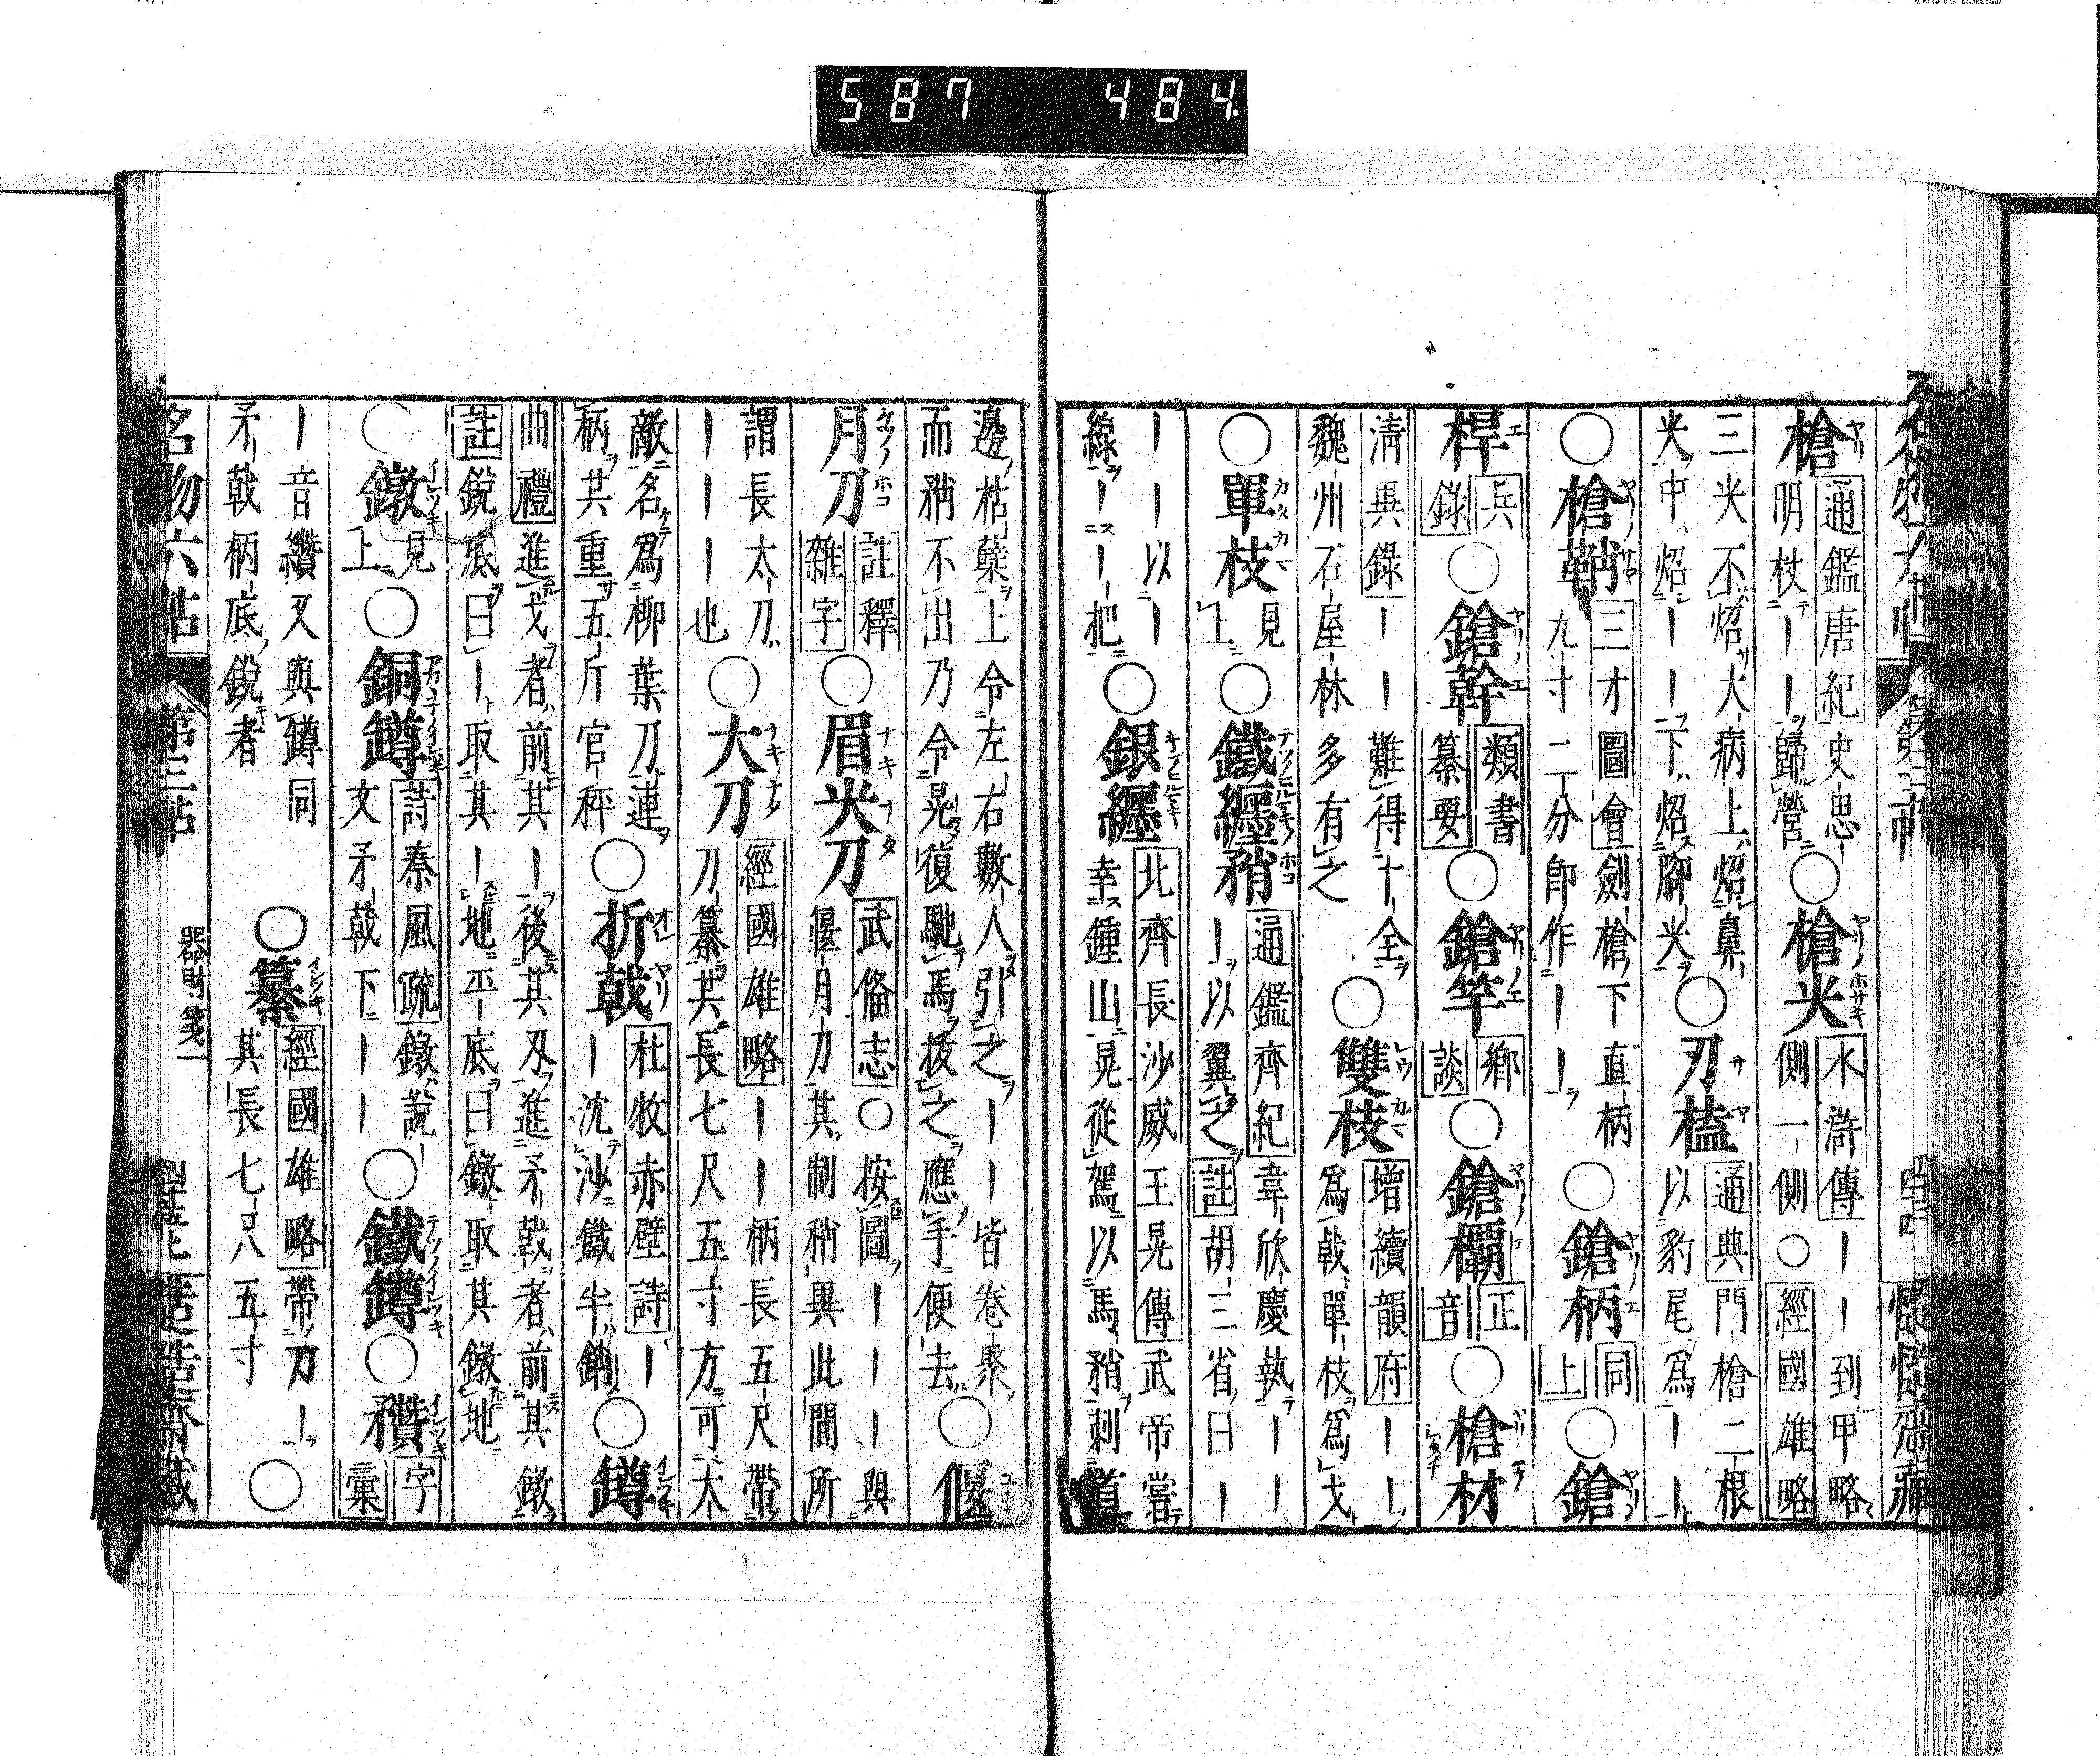 587 484.
槍 通鑑唐紀史思
明杖｜｜歸營
○槍尖 水滸傳｜｜到甲略
側一側○經國雄略
三尖不炤大病上炤鼻
尖中炤｜｜下炤腳尖
○刃榼 通典門槍二根
以豹尾爲｜｜
○槍鞘 三才圖會劍槍下直柄
九寸二分即作｜｜
○鎗柄 同上
○鎗
桿 兵錄
○鎗幹 類書纂要
○鎗竿 鄉談
○鎗欛 正音
○槍材
淸異錄｜｜難得十全
魏州石屋林多有之
○雙枝 增續韻府｜｜
爲戟單枝爲戈
○單枝 見上
○鐵纒矟 通鑑齊紀韋欣慶執｜｜
｜以翼之註胡三省曰｜｜
｜｜以｜
線｜｜把
○銀纒 北齊長沙威王晃傳武帝嘗
幸鍾山晃從駕以馬矟刺道
邊枯蘖上令左右數人引之｜｜皆卷聚
而矟不出乃令晃復馳馬拔之應手便去
○偃
月刀 註釋雜字
○眉尖刀 武俻志○按圖｜｜｜與
偃月刀其制稍異此間所
謂長太刀
｜｜｜也
○大刀 經國雄略｜｜柄長五尺帶
刀纂其長七尺五寸方可大
敵名爲柳葉刀連
柄共重五斤官秤
○折戟 杜牧赤壁詩｜
｜沈沙鐵半銷
○鐏
曲禮進戈者前其｜後其刃進矛戟者前其鐓
註銳底曰｜取其｜地平底曰鐓取其鐓地
○鐓 見上
○銅鐏 詩秦風疏鐓說｜
文矛戟下｜｜
○鐵鐏
○穳 字彙
｜音纘又與鐏同
矛戟柄底銳者
○纂 經國雄略帶刀｜
其長七尺五寸
○
名物六帖 第三帖 器財箋一